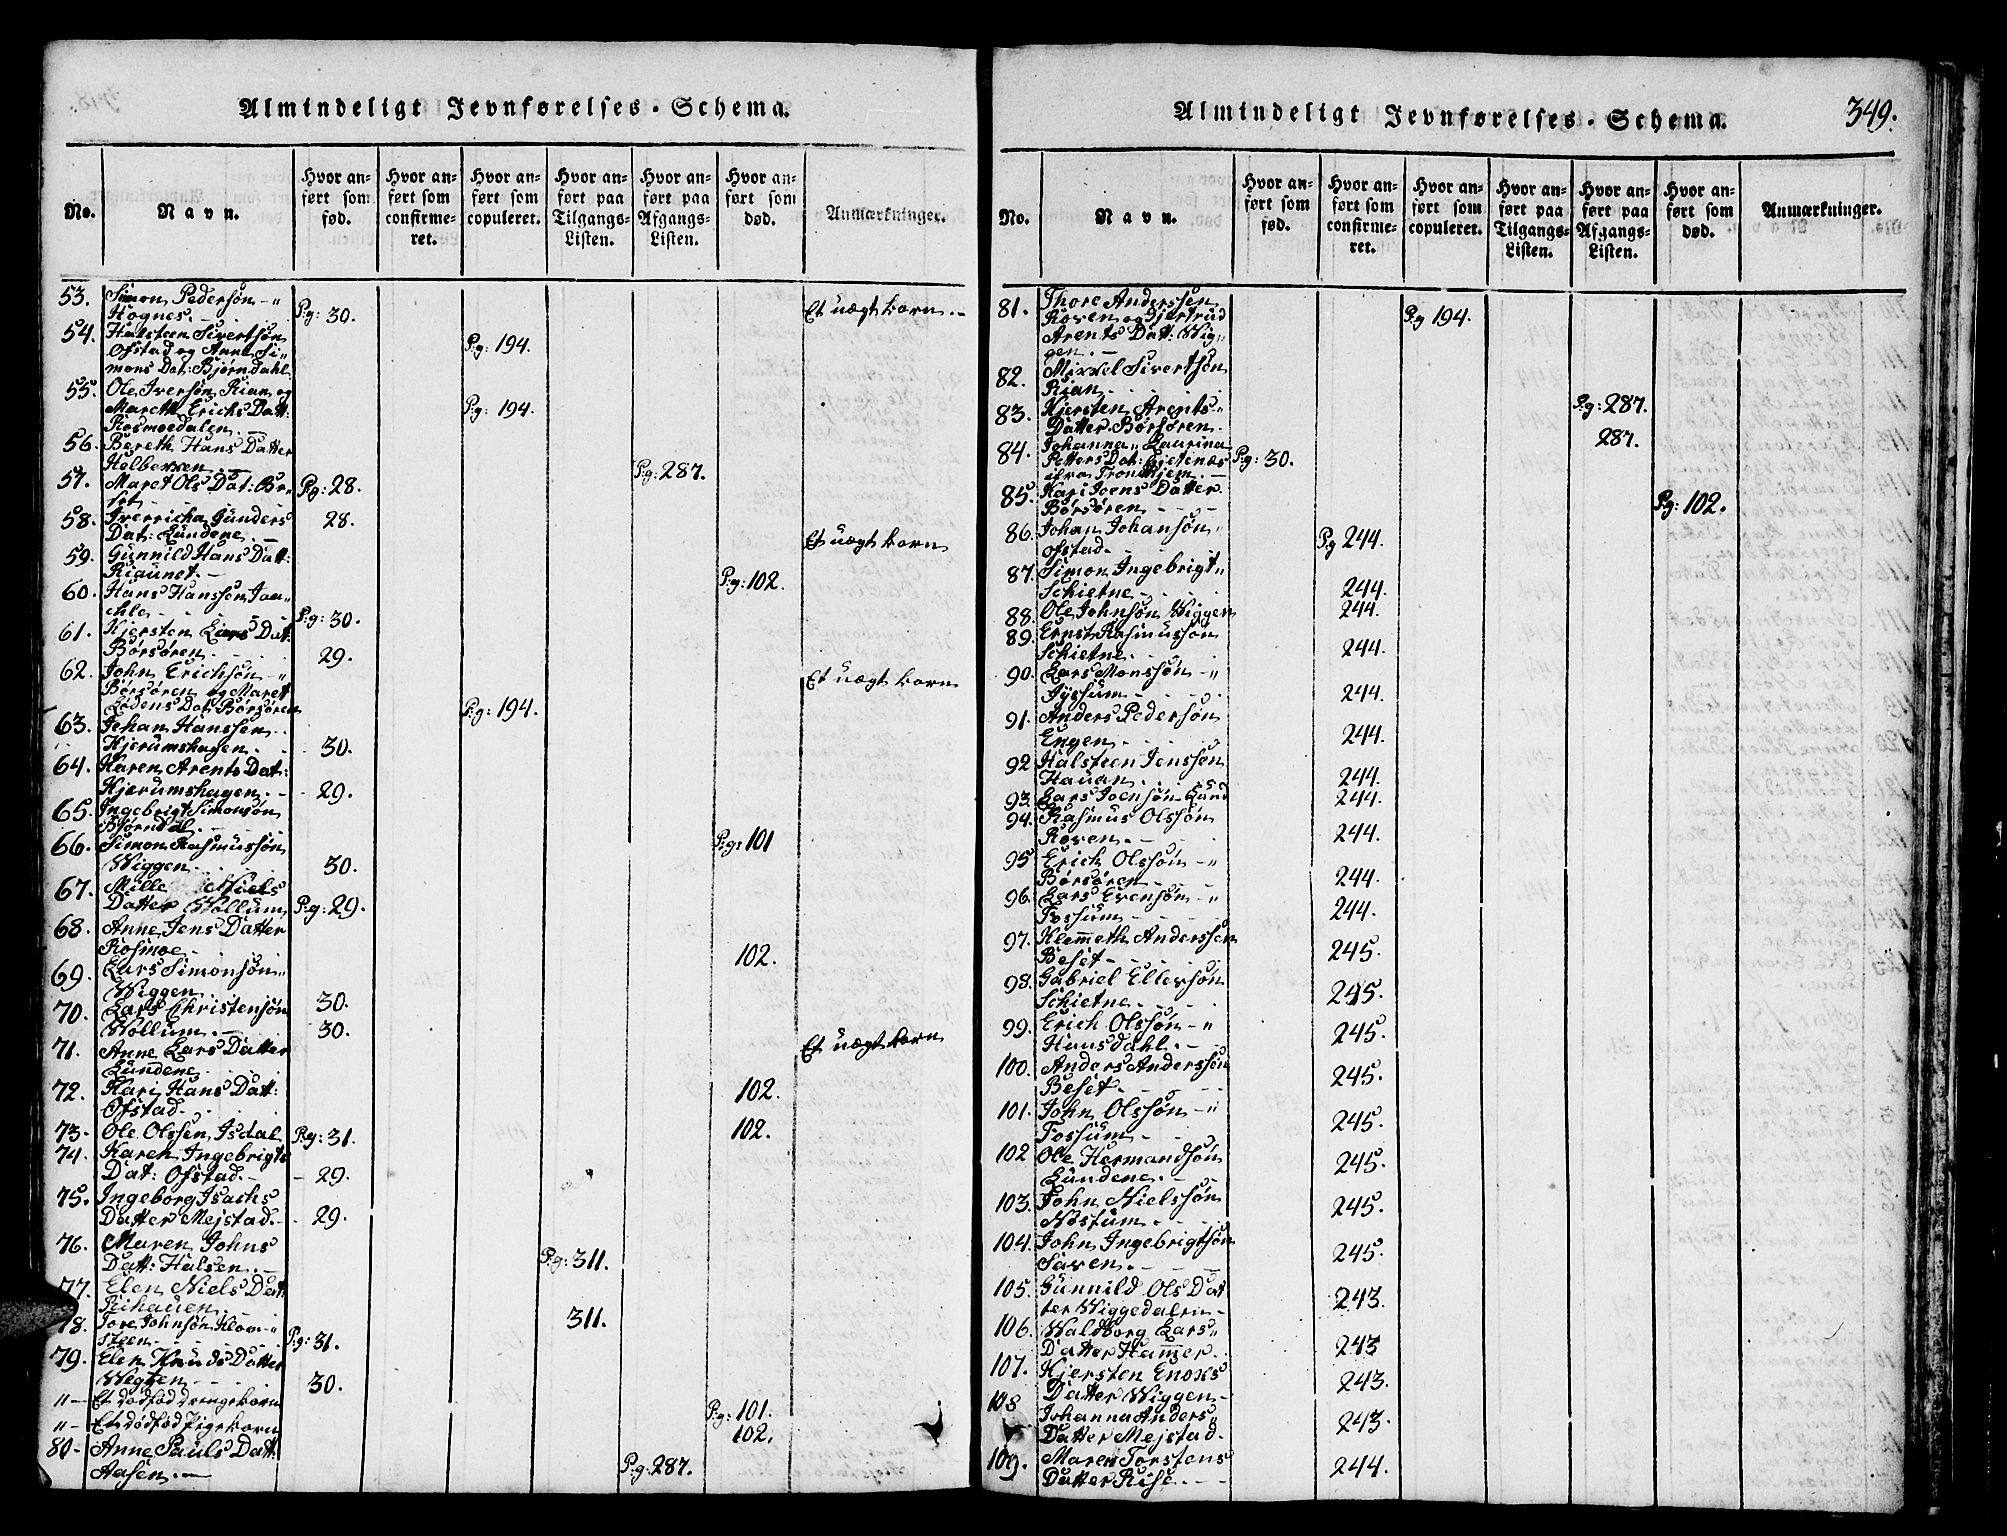 Almindeligt Jevnførelses-Schema.
No. Navn. Hvor anført som fød. Hvor anført som confirmeret. Hvor anført som copuleret. Hvor anført paa Tilgangs-Listen. Hvor anført paa Afgangs-Listen. Hvor anført som død. Anmærkninger.
53. Simon Pedersøn -"
Hognes. Pg: 30. Et uægt barn.-
54. Halsteen Sivertsøn
Ofstad og Anne Si"
mons Dat: Bjørndahl Pg: 194.
55. Ole Iversøn Rian og
Marett Erichs Datt:
Rosmoedalen. Pg: 194.
56. Bereth Hans Datter
Helbexxen. Pg: 287.
57. Maret Ols Dat: Bør-
set Pg: 28.
58. Iverricha Gunders
Dat: Lundene. 28. Et uægt barn
59. Gunnild Hans Datt:
Riaunet. Pg: 102.
60. Hans Hanssøn
Pg: 30.
61. Kjersten Lars Dat:
Børsøren. 29.
62. John Erichsøn -" Et uægt barn
Børsøren og Maret
Lødens Dat: Børsøren Pg: 194.
63. Johan Hanssen
Kjerumshagen. 30.
64. Karen Arents Dat:
Kjerumshagen. 29.
65. Ingebrigt Simonsøn
Bjørndal. Pg: 101
66. Simon Rasmussøn
Wiggen. 30.
67. Mille Niels
Datter Wollum Pg: 29.
68. Anne Jens Datter
Rosmoe 102.
69. Lars Simonsøn"
Wiggen 30.
70. Lars Christensøn
Wollum. 30.
71. Anne Lars Datter Et uægt barn
Lundene 102.
72. Kari Hans Datt:
Ofstad. 102.
73. Ole Olssen Isdal Pg: 31.
74. Karen Ingebrigts
Dat: Ofstad. 29.
75. Ingeborg Isachs
Datter Mejstad. 29.
76. Maren Johns
Datt: Halsen. Pg: 311.
77. Elen Niels Dat:
Rihauen. 311.
78. Tore Johnsøn Klom-"
steen Pg: 31.
79. Elen Knuds Datter
Wegten 30.
" - Et dødfød drengebarn Pg: 101.
" - Et dødfød Pigebarn 102.
80- Anne Pauls Datt:
Aasen. Pg: 287.
Almindeligt Jevnførelses-Schema. 349.
No. Navn. Hvor anført som fød. Hvor anført som confirmeret. Hvor anført som copuleret. Hvor anført paa Tilgangs-Listen. Hvor anført paa Afgangs-Listen. Hvor anført som død. Anmærkninger.
81. Thore Anderssen
Roxen og Gjertrud Pg 194.
Arents Dat: Wig"
gen.
82. Mixxel Sivertsøn
Rian. Pg: 287.
83. Kjersten Arents"
Datter Børsøren. 287.
84. Johanna" Laurina
Petters Dat: Gjetenæs Pg: 30.
ifra Trondhjem.
85. Kari Joens Datter
Børsøren Pg: 102.
86. Johan Johansøn"
Ofstad. Pg 244.
87. Simon Ingebrigt"
Schietne 244.
88. Ole Johnsøn Wiggen 244.
89. Ernst Rasmussøn
Schietne. 244.
90. Lars Monssøn -"
244.
91. Anders Pedersøn
Engen. 244.
92 Halsteen Jenssøn
Hauan. 244.
93. Lars Joensøn Lund 244.
94. Rasmus Olssøn
Roxen. 244.
95 Erich Olssøn -"
Børsøren 244.
96. Lars Evensøn -"
Fossum 244.
97. Klemeth Anderssen
Beset- 245.
98. Gabriel Ellevsøn
Schietne 245.
99. Erich Olssøn -"
Hansdahl. 245.
100. Anders Anderssøn
Beset. 245.
101. John Olssøn -"
Fossum 245.
102 Ole Hermandsøn
Lundene. 245.
103. John Nielssøn
Nostum. 245.
104. John Ingebrigtsøn
Saxen. 245.
105. Gunnild Ols Dat
ter Wiggedalen 243.
106. Waldborg Lars"
Datter Hammer. 243
107. Kjersten Enoxs
Datter Wiggen 243.
108 Johanna Anders"
Datter Mejstad. 243.
109. Maren Torstens
Datter Rise. 244.